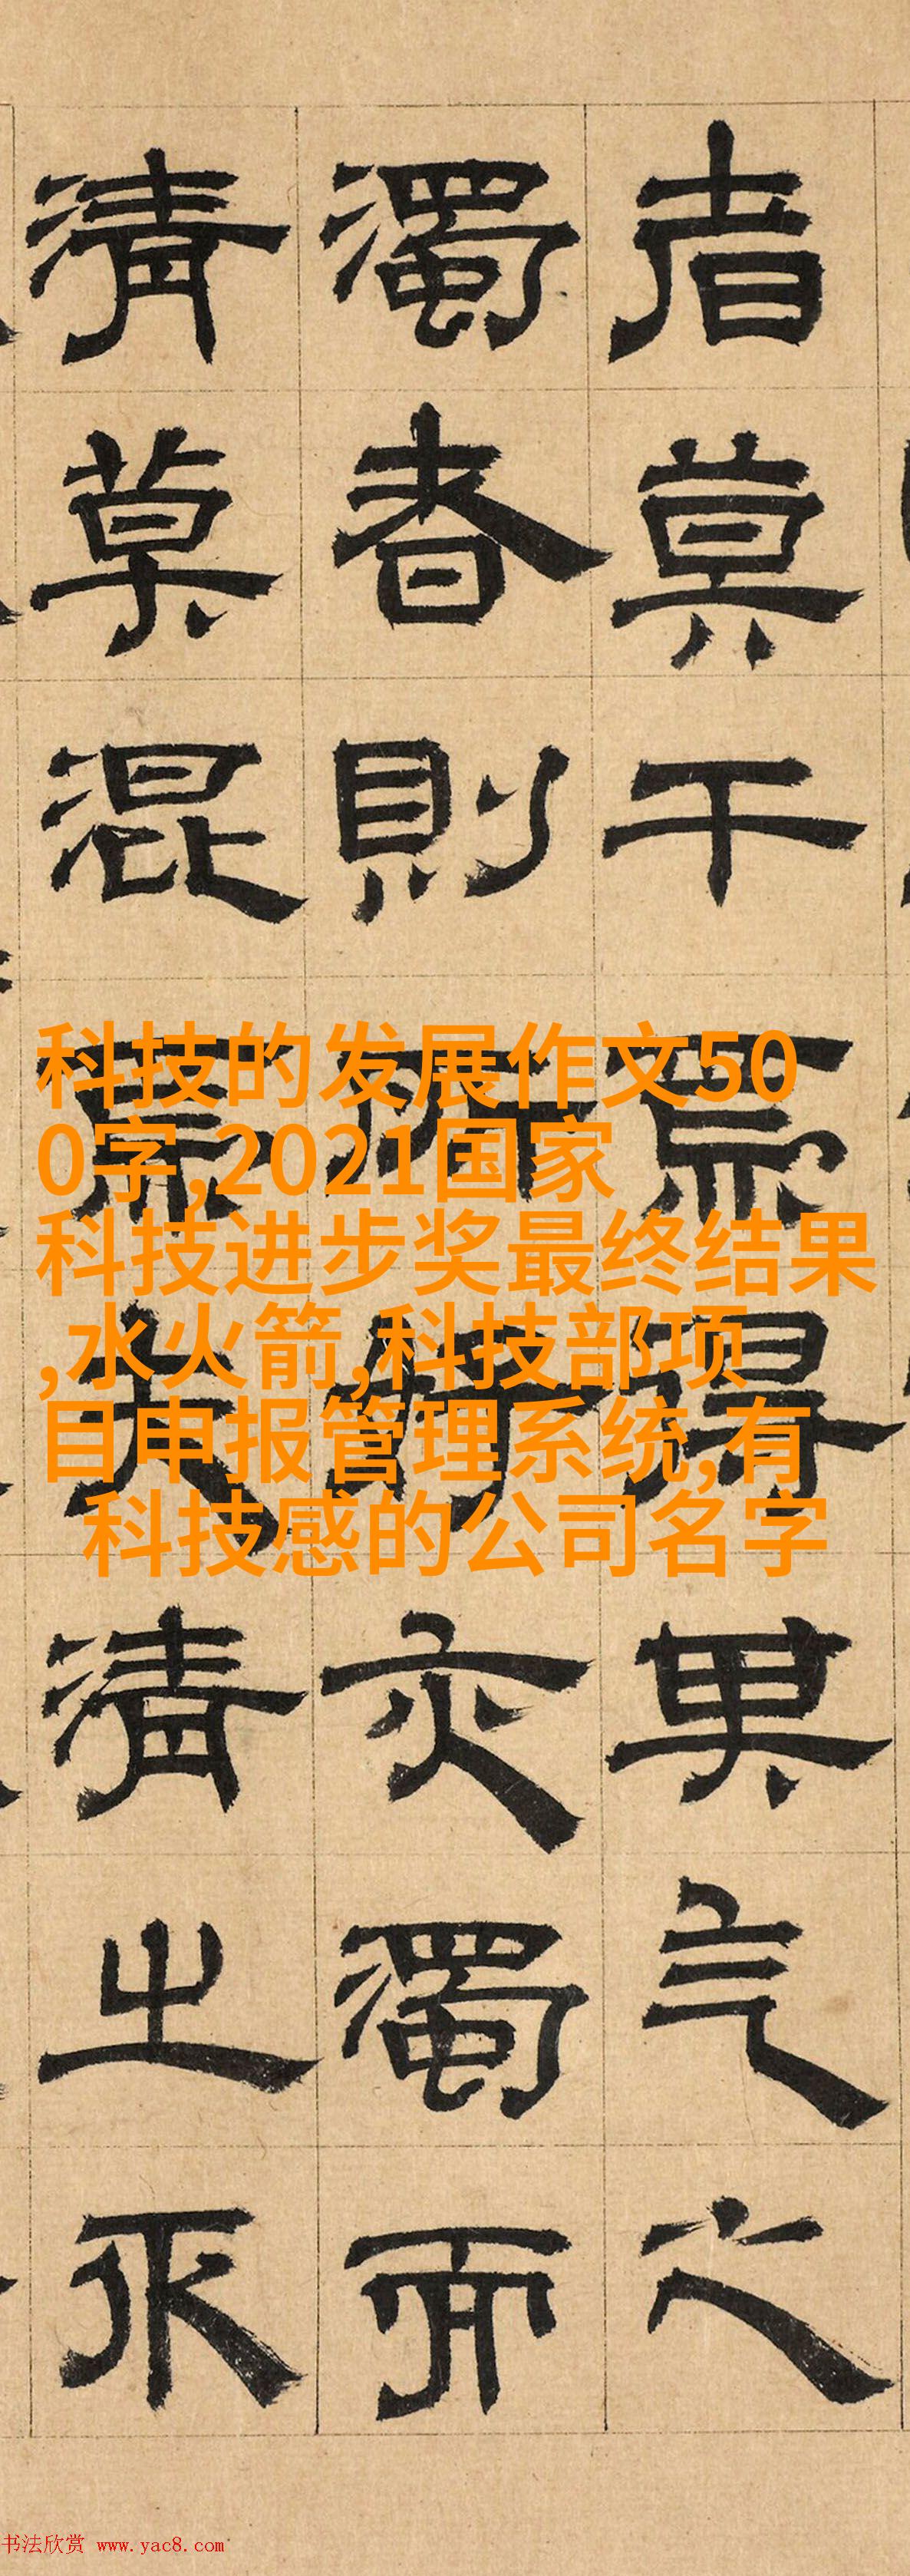 者莫干焉得其气之
濁者則所好亦濁而
清莫混焉清之
科技的发展作文50
0字,2021国家
科技进步奖最终结果
,水火箭,科技部项
目申报管理系统,有
科技感的公司名字
书法欣赏 www.yac8.com